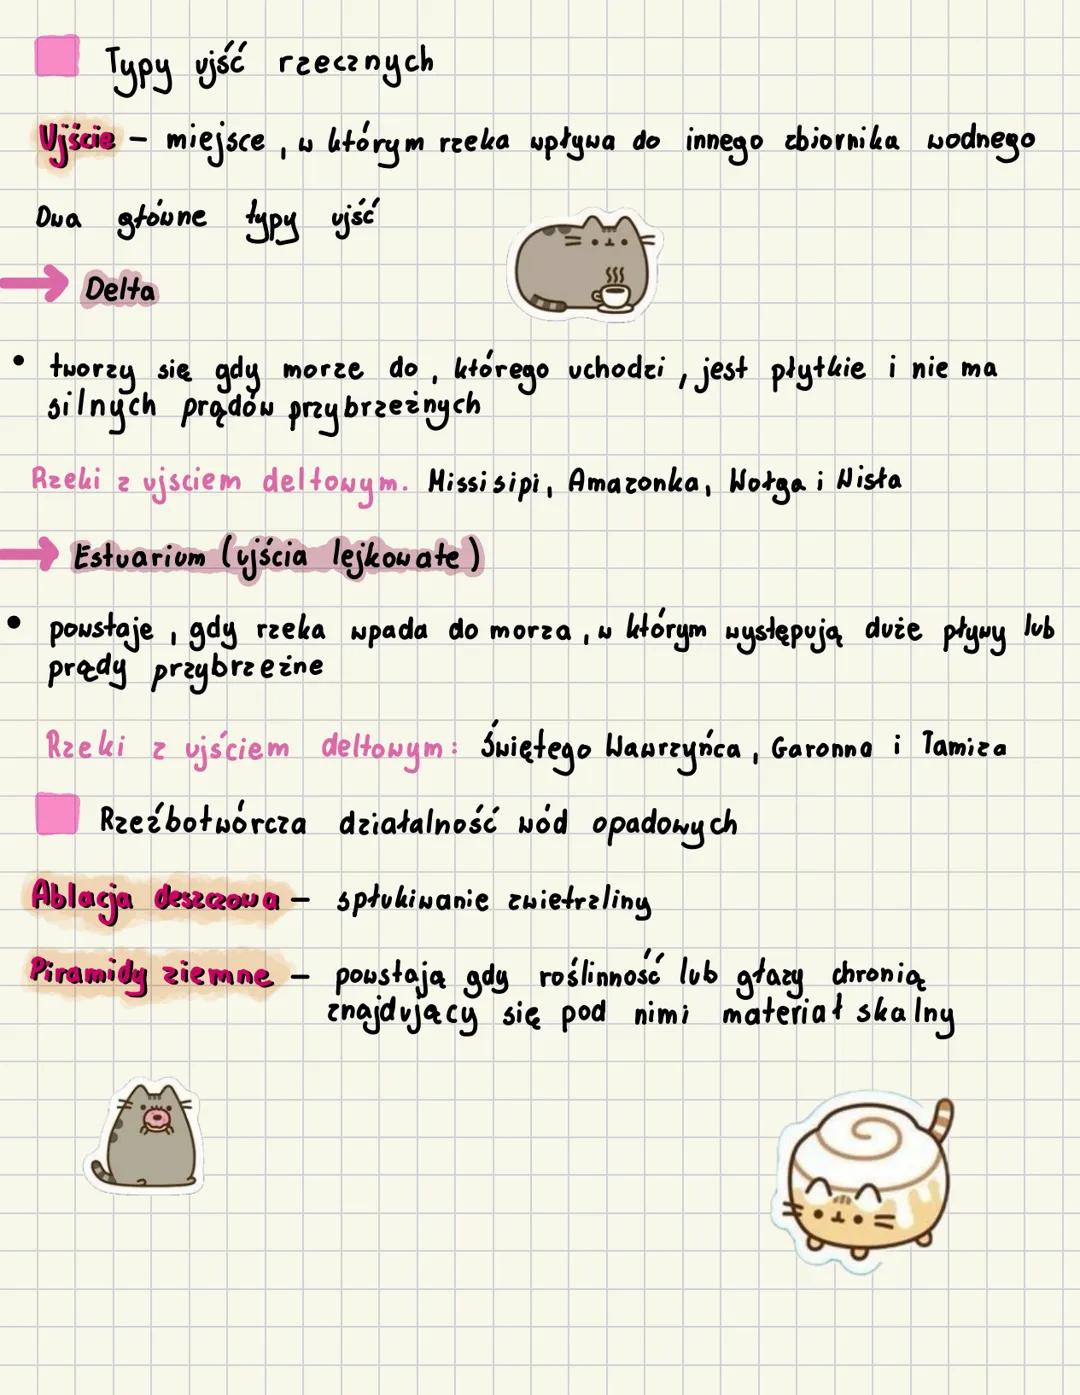 Typy ujść rzecznych
Ujście – miejsce, w którym rzeka wpływa do innego zbiornika wodnego
Dwa główne typy ujść
Delta
• tworzy się gdy morze do, którego uchodzi, jest płytkie i nie ma
silnych prądów przybrzeżnych
Rzeki z ujsciem deltowym. Missisipi, Amazonka, Wołga i Wisła
Estuarium (ujścia lejkowate)
• powstaje, gdy rzeka wpada do morza, w którym występują duże pływy lub
prądy przybrzeżne
Rzeki z ujściem deltowym: Świętego Wawrzyńca, Garonna i Tamiza
Rzeźbotwórcza działalność wód opadowych
Ablacja deszczowa – spłukiwanie zwietrzliny
Piramidy ziemne – powstają gdy roślinność lub głazy chronią
znajdujący się pod nimi materiał skalny